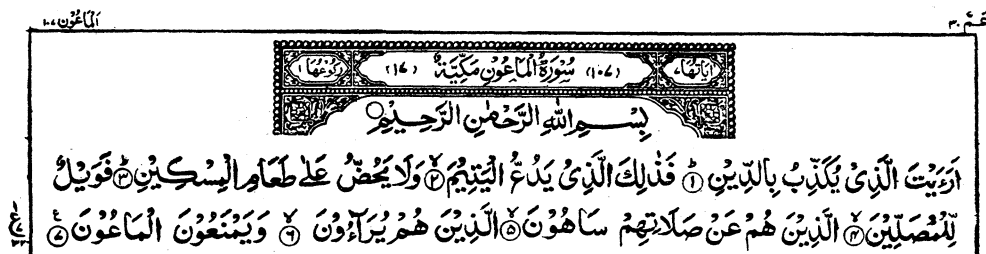 عَمَّ ٣٠
الماعون ١٠٧
اٰیَاتُهَا ٧ (١٠٧) سُوْرَةُ الْمَاعُوْنِ مَكِّيَّةٌ (١٧) رُكُوْعُهَا ١
بِسْمِ اللّٰهِ الرَّحْمٰنِ الرَّحِيْمِ
اَرَءَيْتَ الَّذِىْ يُكَذِّبُ بِالدِّيْنِ ؕ﴿١﴾ فَذٰلِكَ الَّذِىْ يَدُعُّ الْيَتِيْمَ ۙ﴿٢﴾ وَلَا يَحُضُّ عَلٰى طَعَامِ الْمِسْكِيْنِ ؕ﴿٣﴾ فَوَيْلٌ
لِّلْمُصَلِّيْنَ ۙ﴿٤﴾ الَّذِيْنَ هُمْ عَنْ صَلَاتِهِمْ سَاهُوْنَ ۙ﴿٥﴾ الَّذِيْنَ هُمْ يُرَآءُوْنَ ۙ﴿٦﴾ وَيَمْنَعُوْنَ الْمَاعُوْنَ ﴿٧﴾